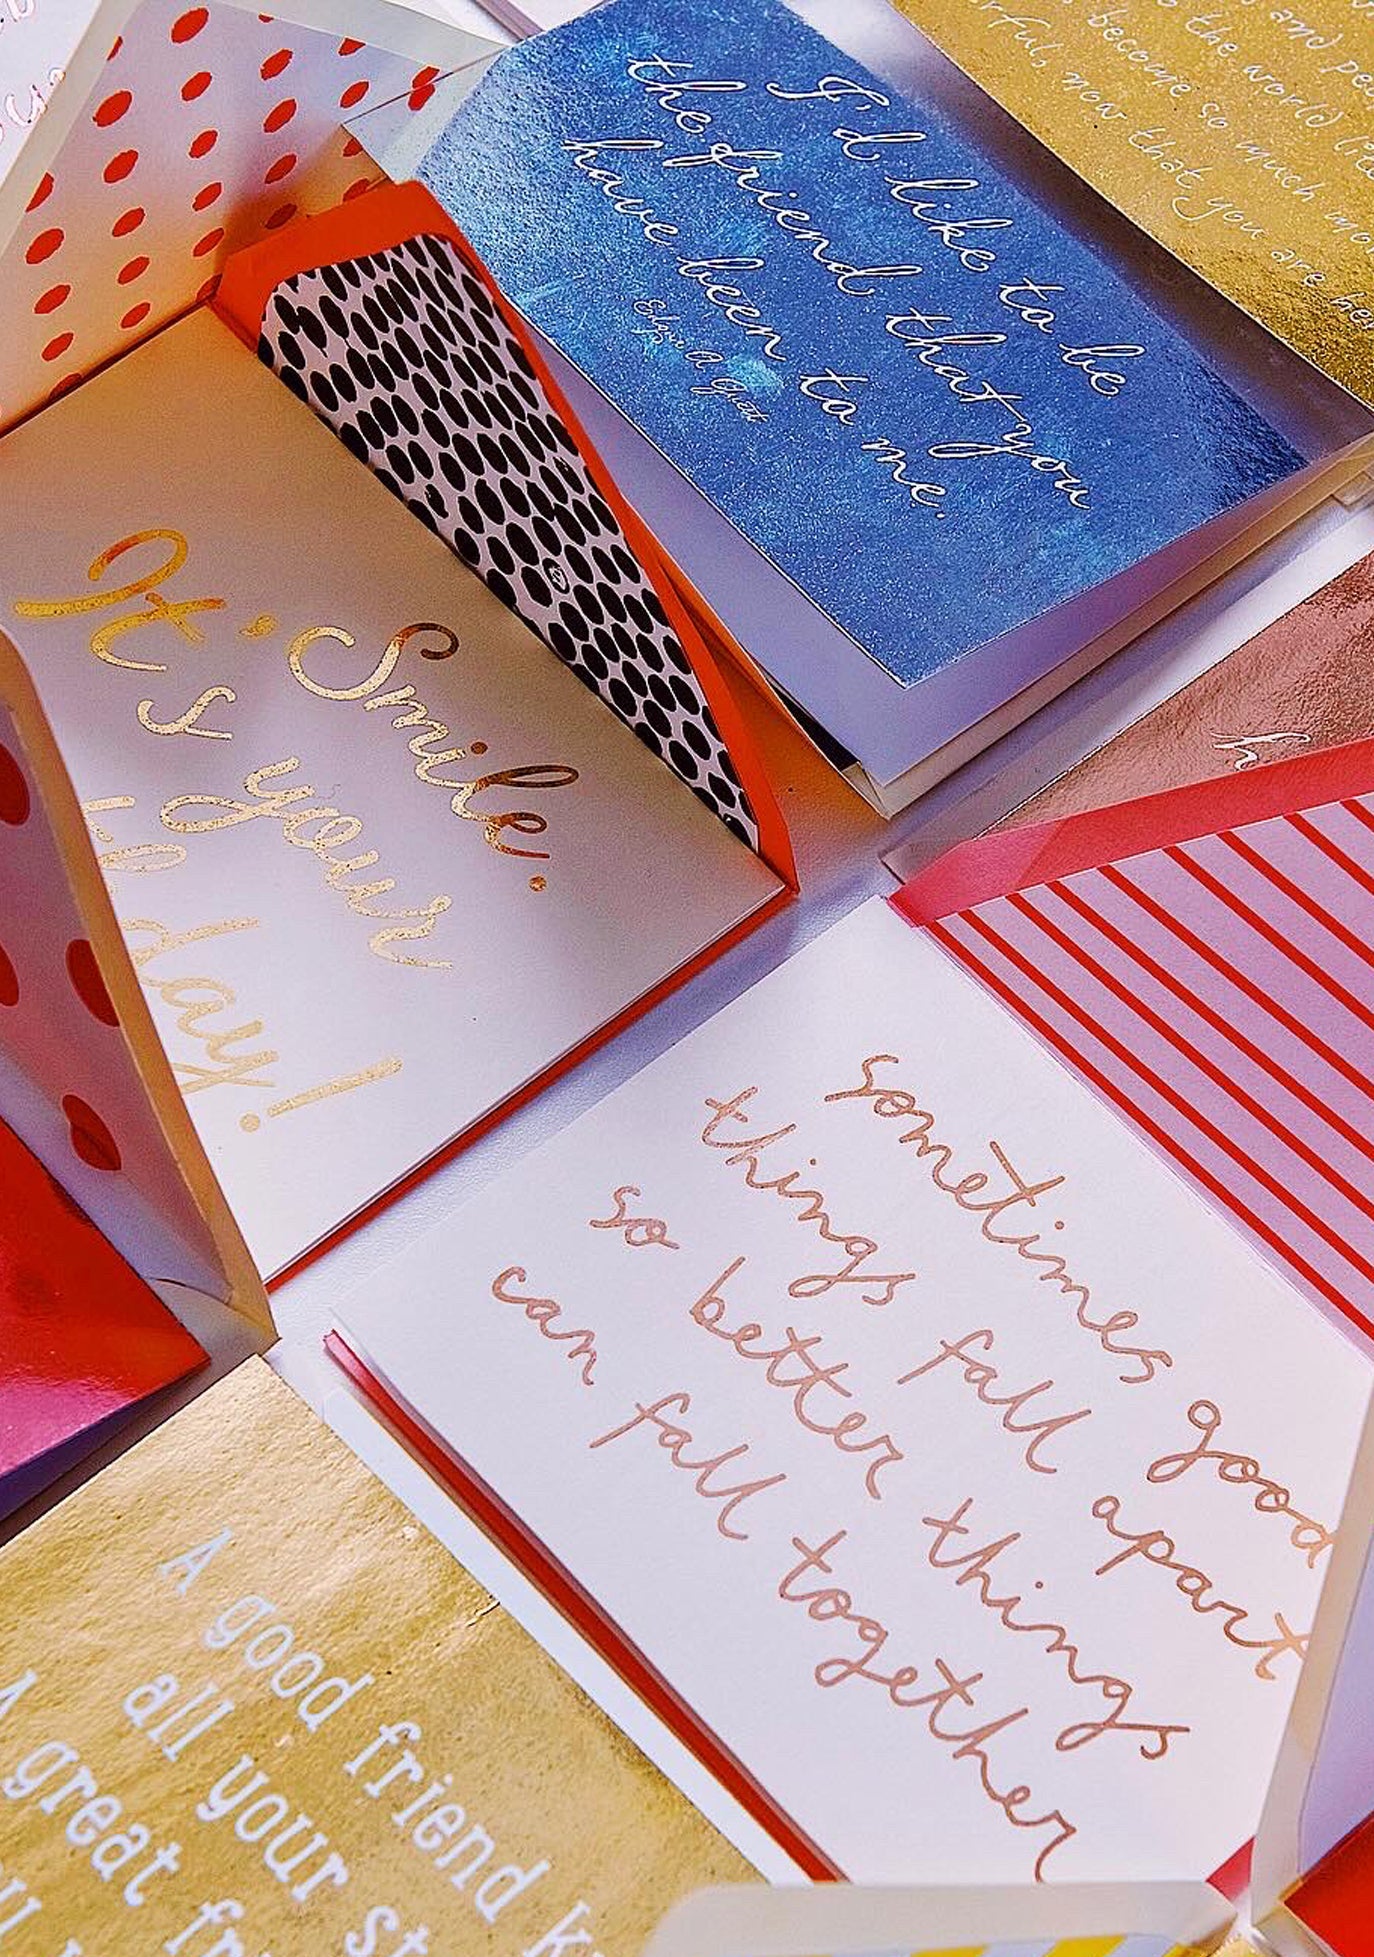 I'd like to be
the friend that you
have been to me.
and
to the world
become so much
now that you are here
Smile.
It's your
day!
h
sometimes good
things fall apart
so better things
can fall together
A good friend
all your
A great